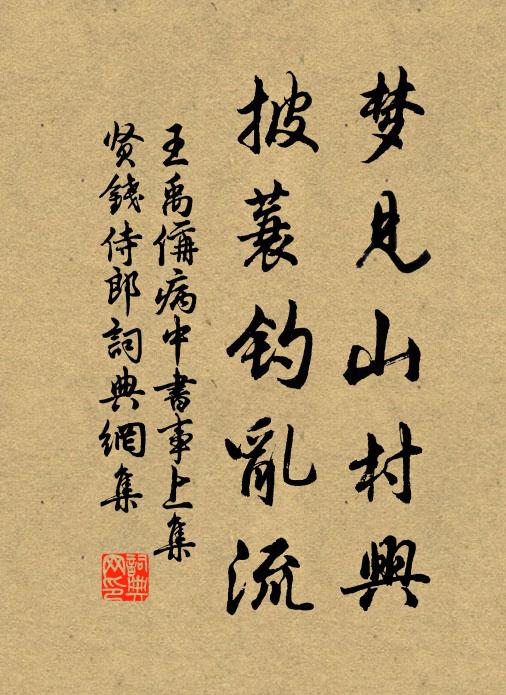 梦见山村興
披蓑钓亂流
王禹偁病中書事上集
贤錢侍郎詞典網集
詞典网印